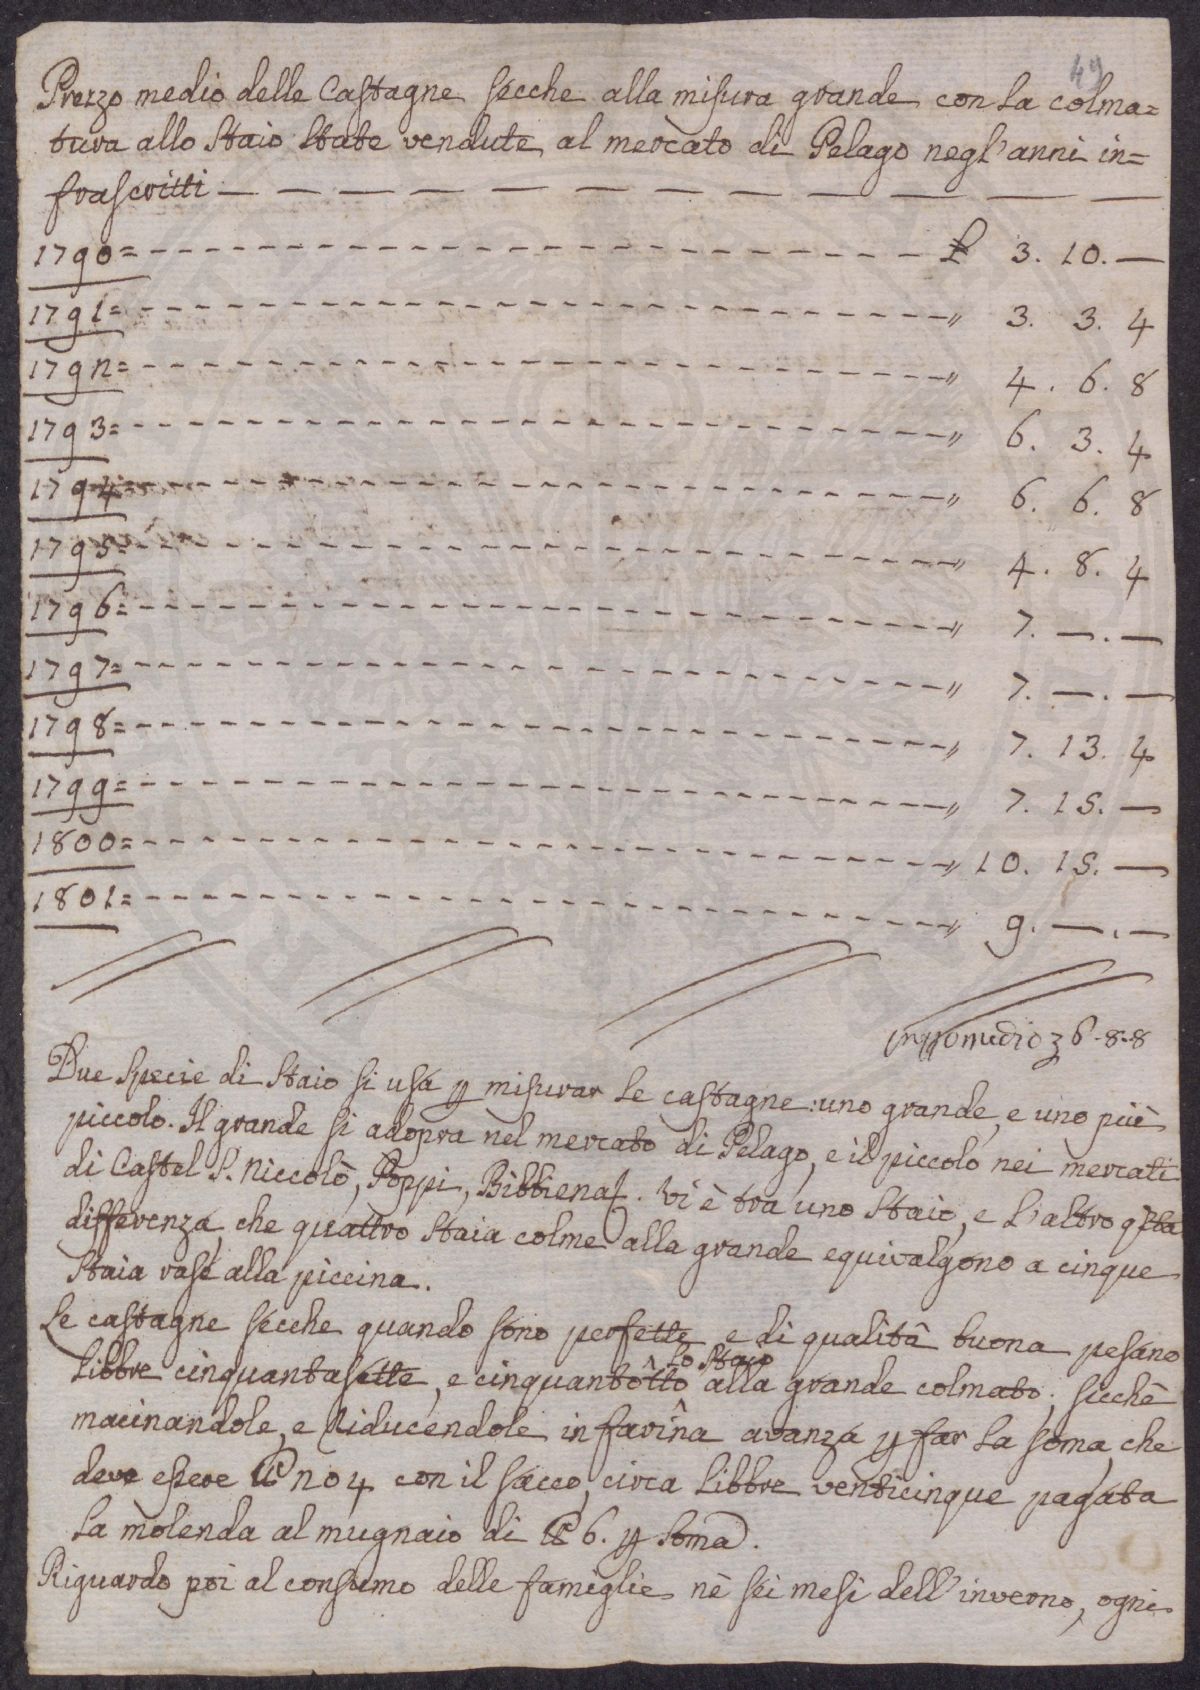 49
Prezzo medio delle Castagne secche alla misura grande con la colma=
tura allo Staio State vendute al mercato di Pelago negl'anni in=
frascritti — — — — — — — — — — — —
1790= - - - - - - - - - - £ 3. 10. —
1791= - - - - - - - - - - " 3. 3. 4
1792= - - - - - - - - - - " 4. 6. 8
1793= - - - - - - - - - - " 6. 3. 4
1794= - - - - - - - - - - " 6. 6. 8
1795= - - - - - - - - - - " 4. 8. 4
1796= - - - - - - - - - - " 7. —. —
1797= - - - - - - - - - - " 7. —. —
1798= - - - - - - - - - - " 7. 13. 4
1799= - - - - - - - - - - " 7. 15. —
1800= - - - - - - - - - - " 10. 15. —
1801= - - - - - - - - - - " 9. —. —
6-8-8
Due Specie di Staio si usa p misurar le castagne: uno grande, e uno più
piccolo. Il grande si adopra nel mercato di Pelago, e il piccolo nei mercati
di Castel S. Niccolò, Poppi, Bibbiena. Vi è tra uno Staio, e l'altro qsta
differenza, che quattro Staia colme alla grande equivalgono a cinque
Staia rase alla piccina.
Le castagne secche quando sono perfette, e di qualità buona pesano
libbre cinquantasette, e cinquantotto lo Staio alla grande colmato; sicchè
macinandole, e riducendole in farina avanza p far la soma, che
deve essere 204 con il sacco, circa libbre venticinque pagata
la molenda al mugnaio di 6. p soma.
Riguardo poi al consumo delle famiglie nè sei mesi dell'inverno, ogni